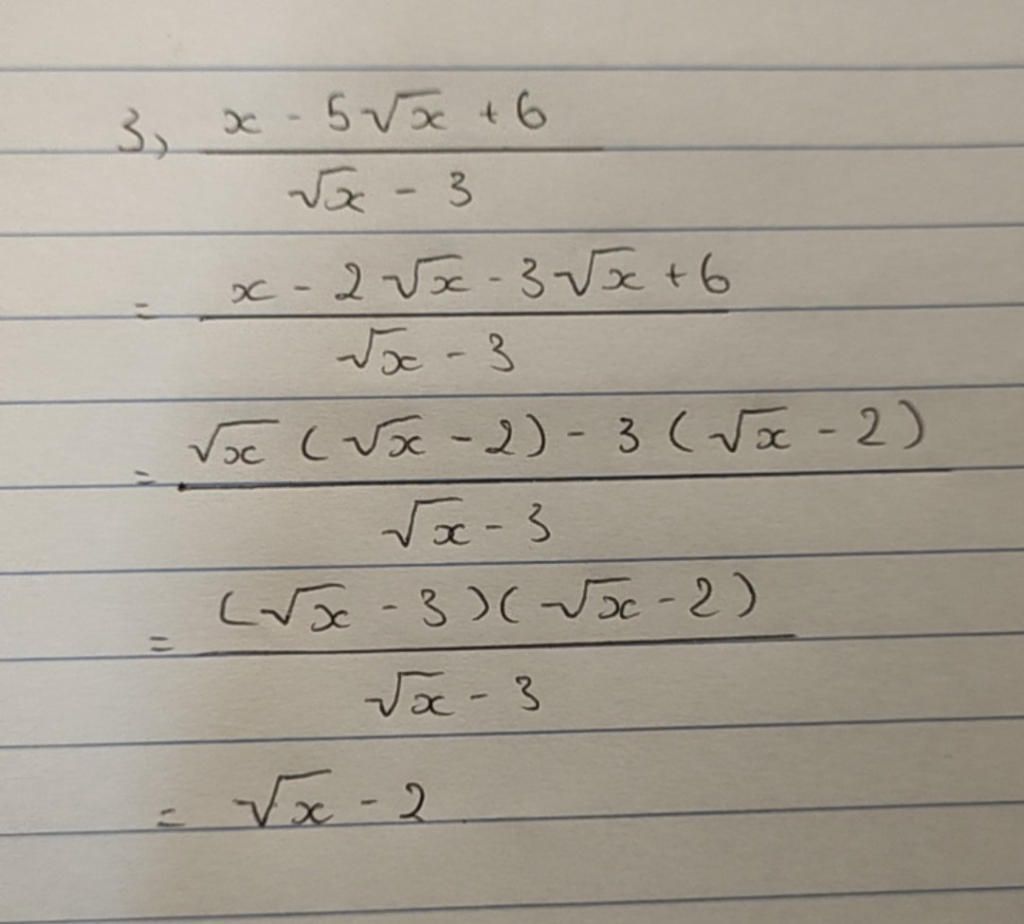 3, x - 5√x + 6
√x - 3
= x - 2√x - 3√x + 6
√x - 3
= √x (√x - 2) - 3 (√x - 2)
√x - 3
= (√x - 3)(√x - 2)
√x - 3
= √x - 2